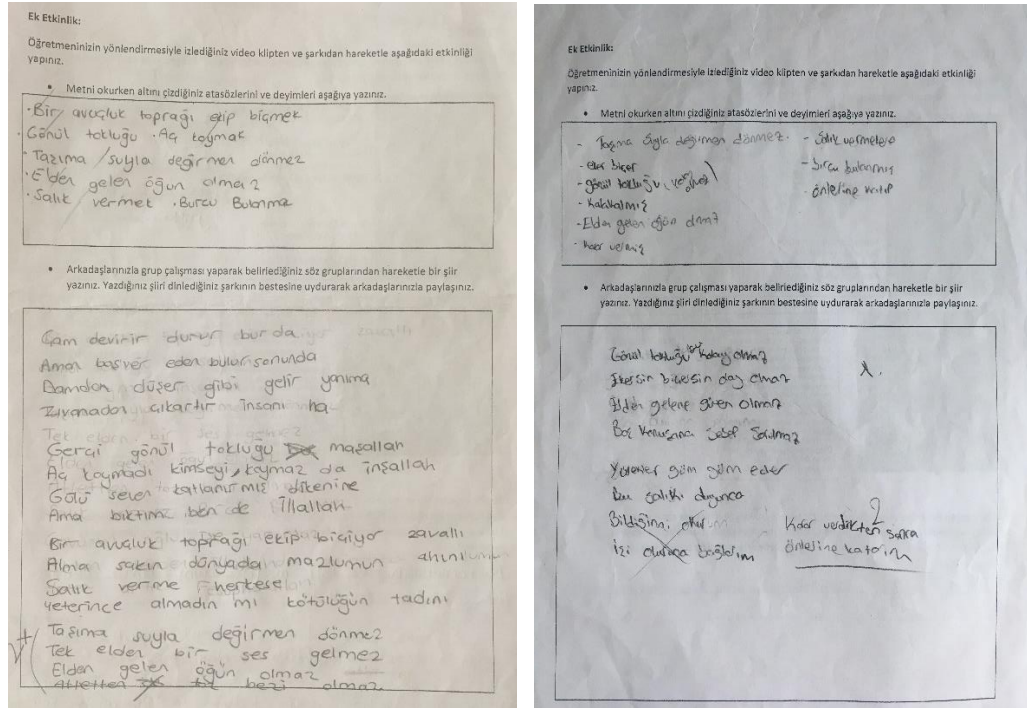 Ek Etkinlik:
Öğretmeninizin yönlendirmesiyle izlediğiniz video klipten ve şarkıdan hareketle aşağıdaki etkinliği
yapınız.
• Metni okurken altını çizdiğiniz atasözlerini ve deyimleri aşağıya yazınız.
· Bir avuçluk toprağı ekip biçmek
· Gönül tokluğu · Aç koymak
· Tazıma suyla değirmen dönmez
· Elden gelen öğün olmaz
· Salık vermek · Burcu Bulanma
• Arkadaşlarınızla grup çalışması yaparak belirlediğiniz söz gruplarından hareketle bir şiir
yazınız. Yazdığınız şiiri dinlediğiniz şarkının bestesine uydurarak arkadaşlarınızla paylaşınız.
Çam devirir durur burda
Aman başver eden bulur sonunda
Damdan düşer gibi gelir yanıma
Zıvanadan çıkartır insanı ha
Gerçi gönül tokluğu maşallah
Aç koymadı kimseyi, koymaz da inşallah
Gülü seven katlanırmış dikenine
Ama bıktım ben de İllallah
Bir avuçluk toprağı ekip biçiyor zavallı
Alma sakın dünyada mazlumun ahını
Salık verme herkese
Yeterince almadın mı kötülüğün tadını
Taşıma suyla değirmen dönmez
Tek elden bir ses gelmez
Elden gelen öğün olmaz
bezi olmaz
Ek Etkinlik:
Öğretmeninizin yönlendirmesiyle izlediğiniz video klipten ve şarkıdan hareketle aşağıdaki etkinliği
yapınız.
• Metni okurken altını çizdiğiniz atasözlerini ve deyimleri aşağıya yazınız.
- Taşıma değirmen dönmez. - Salık vermelere
- eker biçer - burcu bulanmış
- gönül tokluğu - önlerine katıp
- Elden gelen öğün olmaz
- karar vermiş
• Arkadaşlarınızla grup çalışması yaparak belirlediğiniz söz gruplarından hareketle bir şiir
yazınız. Yazdığınız şiiri dinlediğiniz şarkının bestesine uydurarak arkadaşlarınızla paylaşınız.
Gönül tokluğu kolay olmaz
Ekersin biçersin olmaz
Elden gelene güven olmaz
Boş konuşana sebep sorulmaz
güm güm eder
Bu duyunca
Bildiğimi
Karar verdikten sonra
önlerine katarım